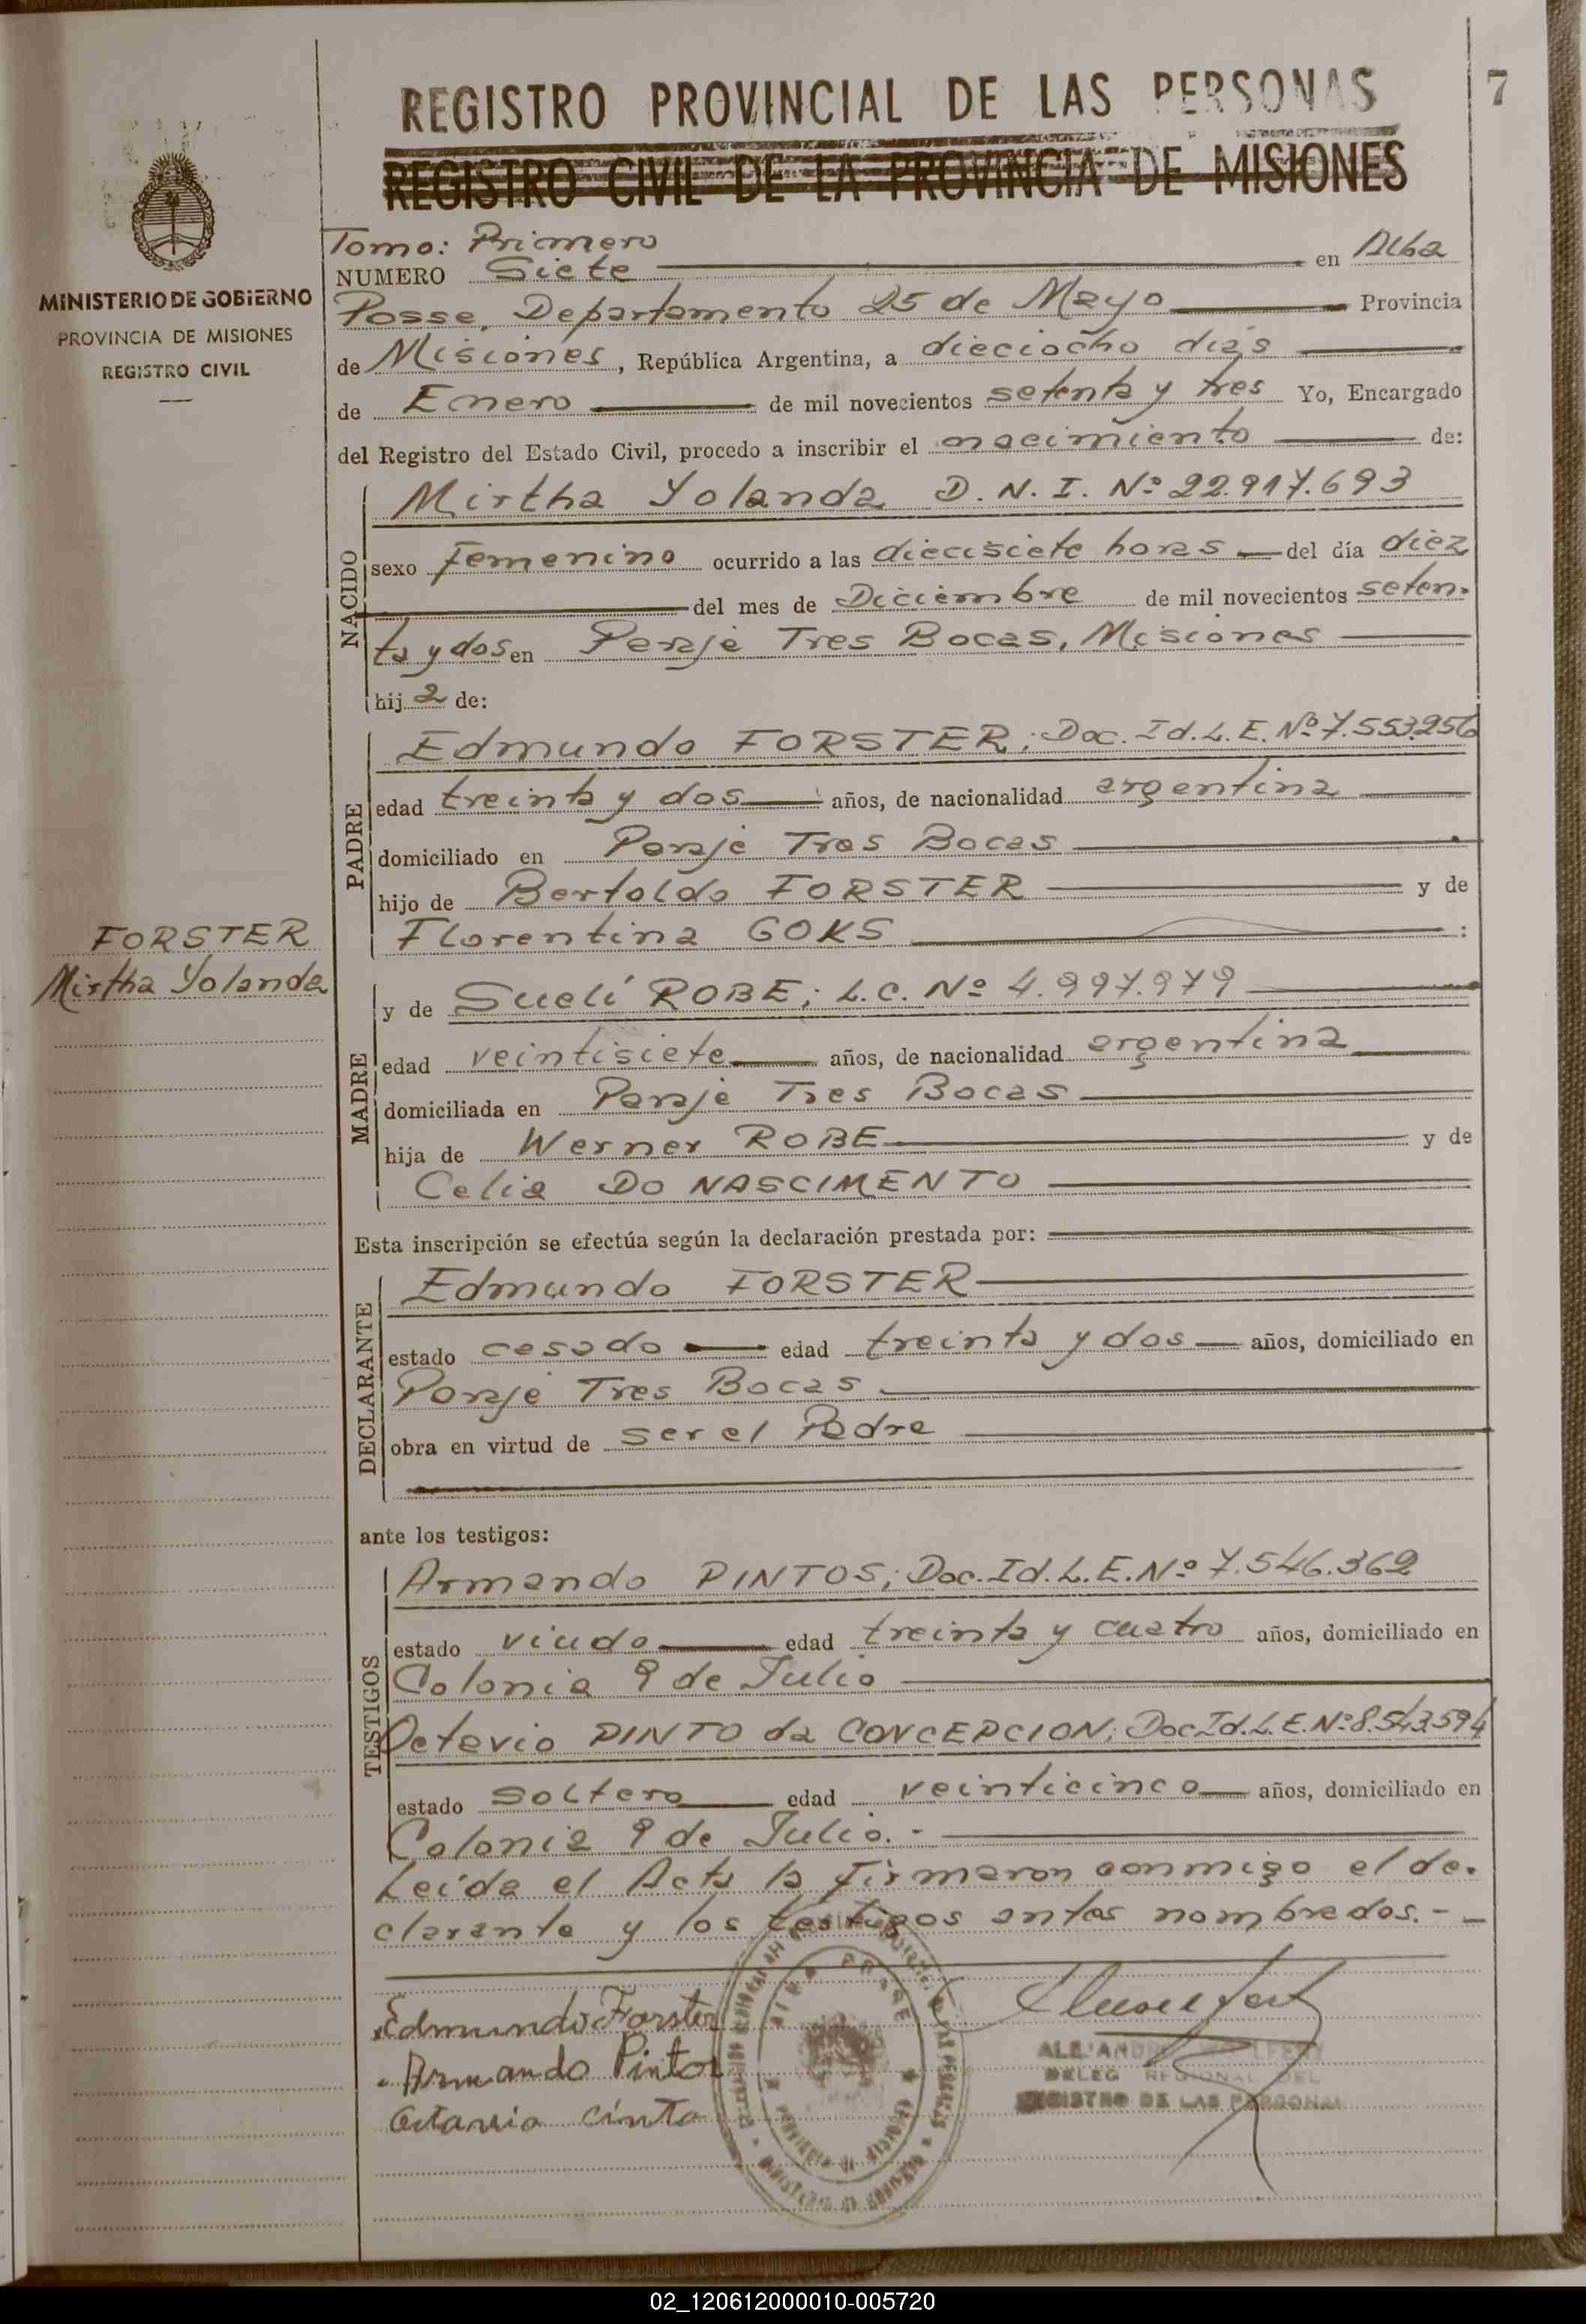 REGISTRO PROVINCIAL DE LAS PERSONAS
7
REGISTRO CIVIL DE LA PROVINCIA DE MISIONES
MINISTERIO DE GOBIERNO
PROVINCIA DE MISIONES
REGISTRO CIVIL
Tomo: Primero
NUMERO Siete en Alba
Posse, Departamento 25 de Mayo Provincia
de Misiones, República Argentina, a dieciocho días
de Enero de mil novecientos setenta y tres Yo, Encargado
del Registro del Estado Civil, procedo a inscribir el nacimiento de:
NACIDO
Mirtha Yolanda D.N.I. Nº 22.917.693
sexo Femenino ocurrido a las diecisiete horas del día diez
del mes de Diciembre de mil novecientos seten-
ta y dos en Paraje Tres Bocas, Misiones
hij a de:
PADRE
Edmundo FORSTER; Doc. Id. L.E. Nº 7.553.256
edad treinta y dos años, de nacionalidad argentina
domiciliado en Paraje Tres Bocas
hijo de Bertoldo FORSTER y de
Florentina GOKS :
FORSTER
Mirtha Yolanda
MADRE
y de Suelí ROBE; L.C. Nº 4.997.979
edad veintisiete años, de nacionalidad argentina
domiciliada en Paraje Tres Bocas
hija de Werner ROBE y de
Celia DO NASCIMENTO
Esta inscripción se efectúa según la declaración prestada por:
DECLARANTE
Edmundo FORSTER
estado casado edad treinta y dos años, domiciliado en
Paraje Tres Bocas
obra en virtud de ser el Padre
ante los testigos:
TESTIGOS
Armando PINTOS; Doc. Id. L.E. Nº 7.546.362
estado viudo edad treinta y cuatro años, domiciliado en
Colonia 9 de Julio
Octavio PINTO da CONCEPCION; Doc Id. L.E. Nº 8.543.594
estado soltero edad veinticinco años, domiciliado en
Colonia 9 de Julio.-
Leída el Acta la firmaron conmigo el de-
clarante y los testigos antes nombrados.--
Edmundo Forster
Armando Pintos
Octavio Pinto
DELEG REGIONAL DEL
REGISTRO DE LAS PERSONAS
02_120612000010-005720